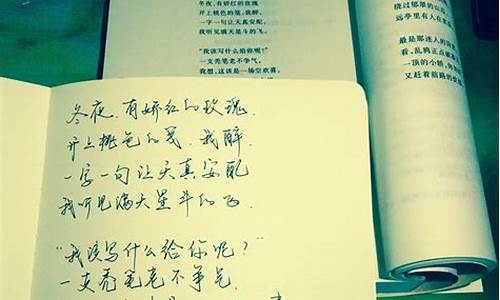 冬夜,有娇红的玫瑰
开上桃色的笺,我醉,
一字一句让天真安配
我听见满天星斗的飞

“我该写什么给你呢?”
一支秃笔老不争气,
冬夜,有娇红的玫瑰
开上桃色的笺,我醉,
一字一句让天真安配,
我听见满天星斗的飞。
“我该写什么给你呢?”
一支秃笔老不争气,
我想,这该是一场空欢喜,
绕过郁翠的山
远亭里有人在
最是那迷人的
看,乱鸦正点
一顶的小轿,
又赶着前路的